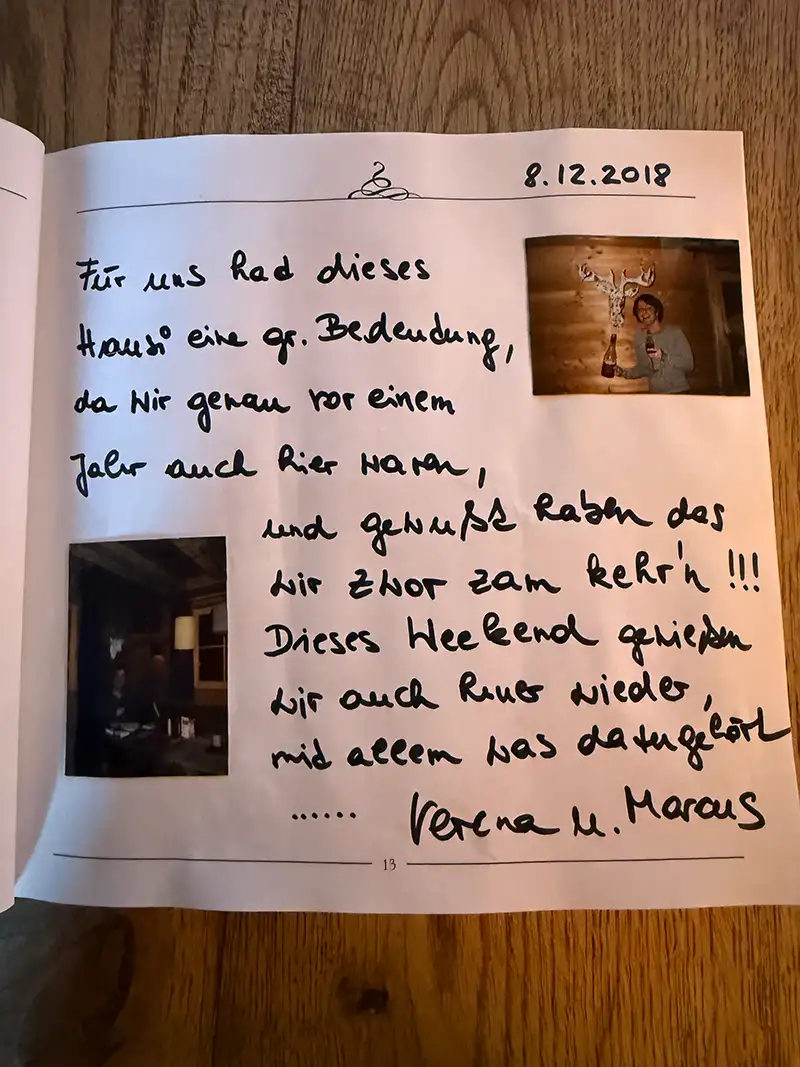 8.12.2018
Für uns had dieses
Hausi eine gr. Bedeudung,
da wir genau vor einem
Jahr auch hier waren,
und gewußt haben das
wir zwor zam kehr'n !!!
Dieses Weekend genießen
wir auch heuer wieder,
mid allem was dazugehört
...... Verena u. Marcus
13